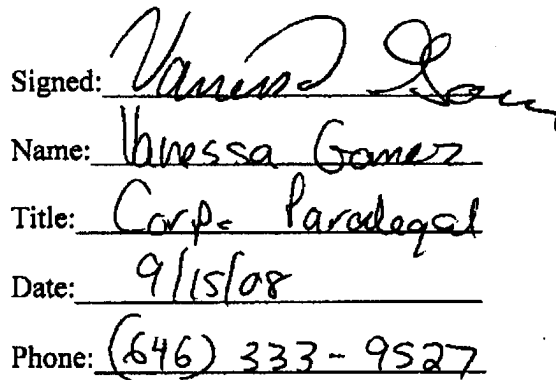 Signed: Vanessa
Name: Vanessa Gomez
Title: Corp. Paralegal
Date: 9/15/08
Phone: (646) 333-9527